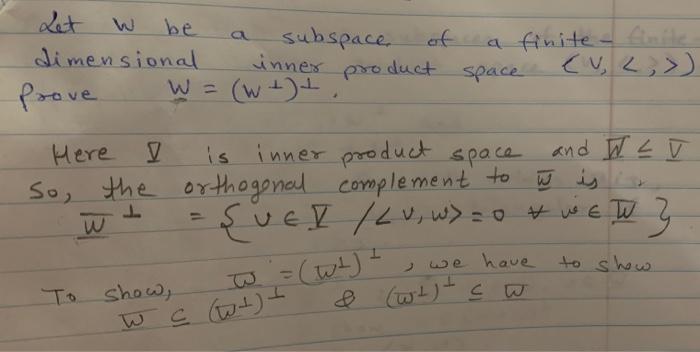 Let W be a subspace of a finite-
dimensional inner product space (V, <,>)
Prove W = (W⊥)⊥.
Here V is inner product space and W ≤ V
So, the orthogonal complement to W is
W⊥ = {v ∈ V / <v, w> = 0 ∀ w ∈ W}
To show, W = (W⊥)⊥, we have to show
W ⊆ (W⊥)⊥ & (W⊥)⊥ ⊆ W